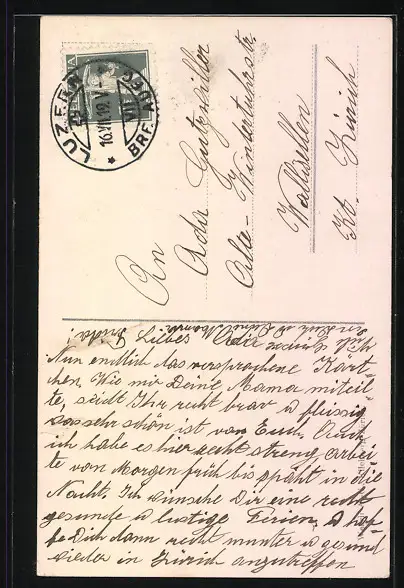 LUZERN
16.VII.19.V-
BRF.AUFG.
VII
An
Adir Gutzwiller
Alte-Winterthurstr.
Wallisellen
Kt. Zürich
Liebes Adir
Nun endlich das versprochene Kärt-
chen. Wie mir Deine Mama mitteil-
te, seidt Ihr recht brav u fleissig
was sehr schön ist von Euch. Auch
ich habe es hier recht streng, arbei-
te von Morgen früh bis späht in die
Nacht. Ich wünsche Dir eine recht
gesunde u lustige Ferien, u hof-
fe Dich dann recht munter u gesund
wieder in Zürich anzutreffen
Frieda!